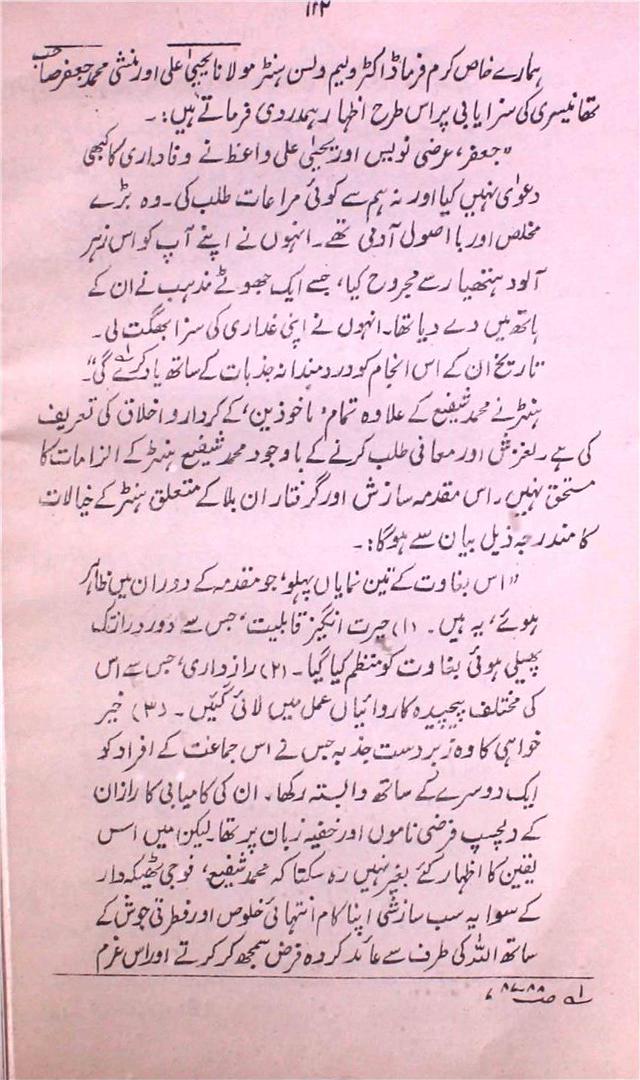 ۱۲۲
ہمارے خاص کرم فرما ڈاکٹر ولیم ولسن ہنٹر مولانا یحییٰ علی اور منشی محمد جعفر صاحب
تھانیسری کی سزایابی پر اس طرح اظہار ہمدردی فرماتے ہیں:۔
”جعفر، عرضی نویس اور یحییٰ علی واعظ نے وفاداری کا کبھی
دعویٰ نہیں کیا اور نہ ہم سے کوئی مراعات طلب کی۔ وہ بڑے
مخلص اور با اصول آدمی تھے۔ انہوں نے اپنے آپ کو اس زہر
آلود ہتھیار سے مجروح کیا، جسے ایک جھوٹے مذہب نے ان کے
ہاتھ میں دے دیا تھا۔ انہوں نے اپنی غداری کی سزا بھگت لی۔
تاریخ ان کے اس انجام کو دردمندانہ جذبات کے ساتھ یاد کرے گی“۱؎۔
ہنٹر نے محمد شفیع کے علاوہ تمام ’ماخوذین‘ کے کردار و اخلاق کی تعریف
کی ہے۔ لغزش اور معافی طلب کرنے کے باوجود محمد شفیع ہنٹر کے الزامات کا
مستحق نہیں۔ اس مقدمہ سازش اور گرفتاران بلا کے متعلق ہنٹر کے خیالات
کا مندرجہ ذیل بیان سے ہوگا:۔
”اس بغاوت کے تین نمایاں پہلو، جو مقدمہ کے دوران میں ظاہر
ہوئے، یہ ہیں۔ (۱) حیرت انگیز قابلیت، جس سے دور دراز تک
پھیلی ہوئی بغاوت کو منظم کیا گیا۔ (۲) رازداری، جس سے اس
کی مختلف پیچیدہ کاروائیاں عمل میں لائی گئیں۔ (۳) خیر
خواہی کا وہ زبردست جذبہ جس نے اس جماعت کے افراد کو
ایک دوسرے کے ساتھ وابستہ رکھا۔ ان کی کامیابی کا راز ان
کے دلچسپ فرضی ناموں اور خفیہ زبان پر تھا۔ لیکن میں اس
یقین کا اظہار کئے بغیر نہیں رہ سکتا کہ محمد شفیع، فوجی ٹھیکہ دار
کے سوا یہ سب سازشی اپنا کام انتہائی خلوص اور فطرتی جوش کے
ساتھ اللہ کی طرف سے عائد کردہ فرض سمجھ کر کرتے اور اس عزم
۱؎ ص ۸۷-۸۸،